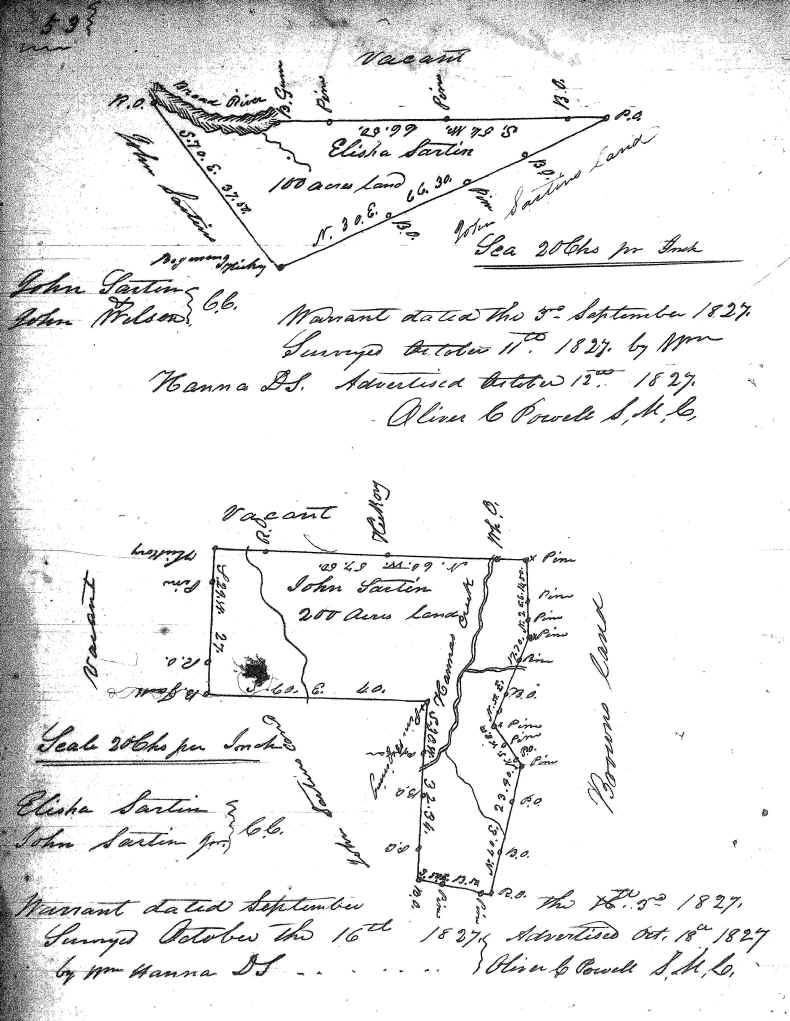 53
Vacant
R.O.
Broad River
B. Gum
Pine
Pine
B.O.
P.O.
S. 54 W. 66.50.
Elisha Sartin
100 acres land
John Sartins
S.70.E. 37.50.
N. 30.E. 66.30.
B.O.
Pine
B.O.
John Sartins Land
Hickry
Sca 20 Chs pr Inch
John Sartin
John Wilson } C.C.
Warrant dated the 3d September 1827.
Surveyed October 11th. 1827. by Wm
Hanna DS. Advertised October 12th. 1827.
Oliver C Powell S, M, C,
Vacant
R.O.
Hickory
Wh. O.
Hickory
Pine
N. 60. W. 57.50.
John Sartin
200 Acres Land
Vacant
Pine
R.O.
27.
E. 40.
Hannas Creek
Pine
Pine
Pine
Pine
B.O.
Pine
Pine
B.O.
Pine
P.O.
B.O.
R.O.
Land
Scale 20 Chs per Inch
John Sartins Land
B.O.
B.O.
Pine
Pine
Elisha Sartin
John Sartin Jnr } C.C.
Warrant dated September the 3d 1827.
Surveyed October the 16th 1827. Advertised Oct. 18th 1827
by Wm Hanna DS - - - - - - - Oliver C Powell S. M, C.